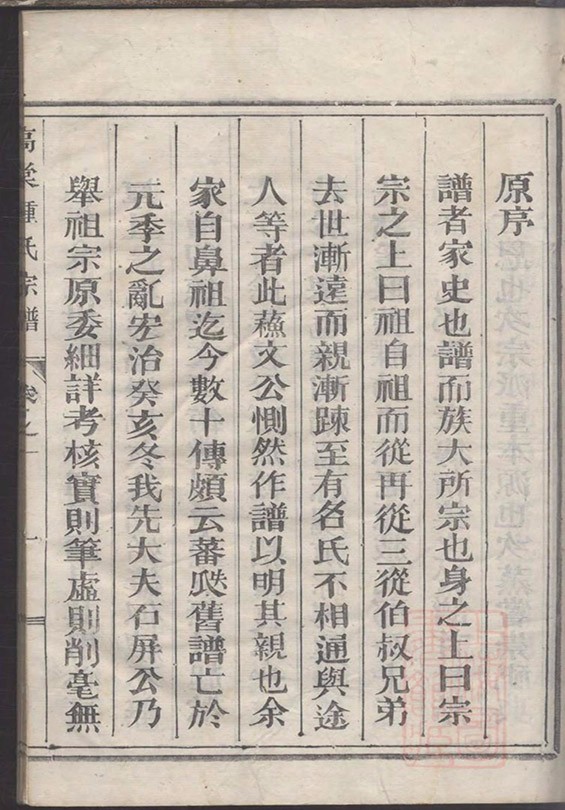 原序
譜者家史也譜而族大所宗也身之上曰宗
宗之上曰祖自祖而從再從三從伯叔兄弟
去世漸遠而親漸踈至有名氏不相通與途
人等者此蘓文公惻然作譜以明其親也余
家自鼻祖迄今數十傳頗云蕃瓞舊譜亡於
元季之亂宏治癸亥冬我先大夫石屏公乃
舉祖宗原委細詳考核實則筆虛則削毫無
氏宗譜